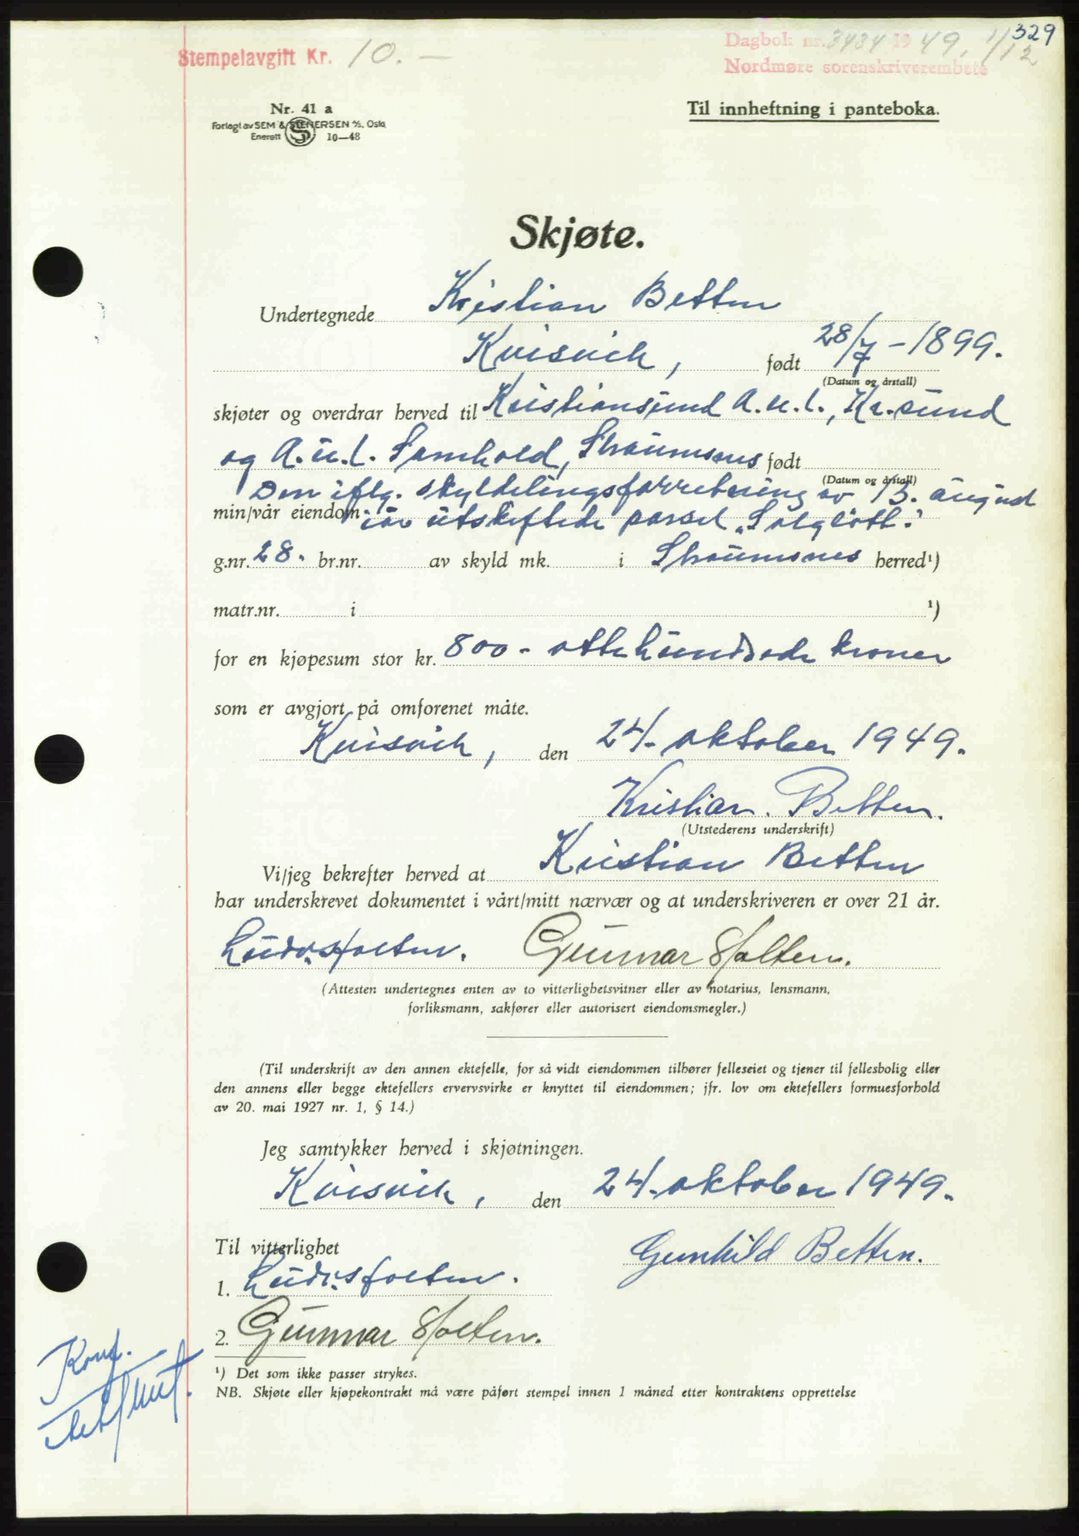 329
Stempelavgift Kr. 10.—
Dagbok nr. 3434 1949, 1/12
Nordmøre sorenskriverembete
Nr. 41 a
Forlagt av SEM & STENERSEN A/S, Oslo
Enerett 10—48
Til innheftning i panteboka.
Skjøte.
Undertegnede Kristian Betten
Kvisvik, født 28/7-1899.
(Datum og årstall)
skjøter og overdrar herved til Kristiansund A.u.l., Kr.sund
og A.u.l. Samhold, Straumsnes født
(Datum og årstall)
Den iflg. skyldelingsforretning av 13. august
min/vår eiendom iår utskiftede parsel "Solgløtt".
g.nr. 28. br.nr. av skyld mk. i Straumsnes herred¹)
matr.nr. i ¹)
for en kjøpesum stor kr. 800.- åttehundrede kroner
som er avgjort på omforenet måte.
Kvisvik, den 24. oktober 1949.
Kristian Betten.
(Utstederens underskrift)
Vi/jeg bekrefter herved at Kristian Betten
har underskrevet dokumentet i vårt/mitt nærvær og at underskriveren er over 21 år.
Gunnar Holten.
(Attesten undertegnes enten av to vitterlighetsvitner eller av notarius, lensmann,
forliksmann, sakfører eller autorisert eiendomsmegler.)
(Til underskrift av den annen ektefelle, for så vidt eiendommen tilhører felleseiet og tjener til fellesbolig eller
den annens eller begge ektefellers ervervsvirke er knyttet til eiendommen; jfr. lov om ektefellers formuesforhold
av 20. mai 1927 nr. 1, § 14.)
Jeg samtykker herved i skjøtningen.
Kvisvik, den 24. oktober 1949.
Til vitterlighet
Gunhild Betten.
1.
2. Gunnar Holten.
Konf.
¹) Det som ikke passer strykes.
NB. Skjøte eller kjøpekontrakt må være påført stempel innen 1 måned etter kontraktens opprettelse